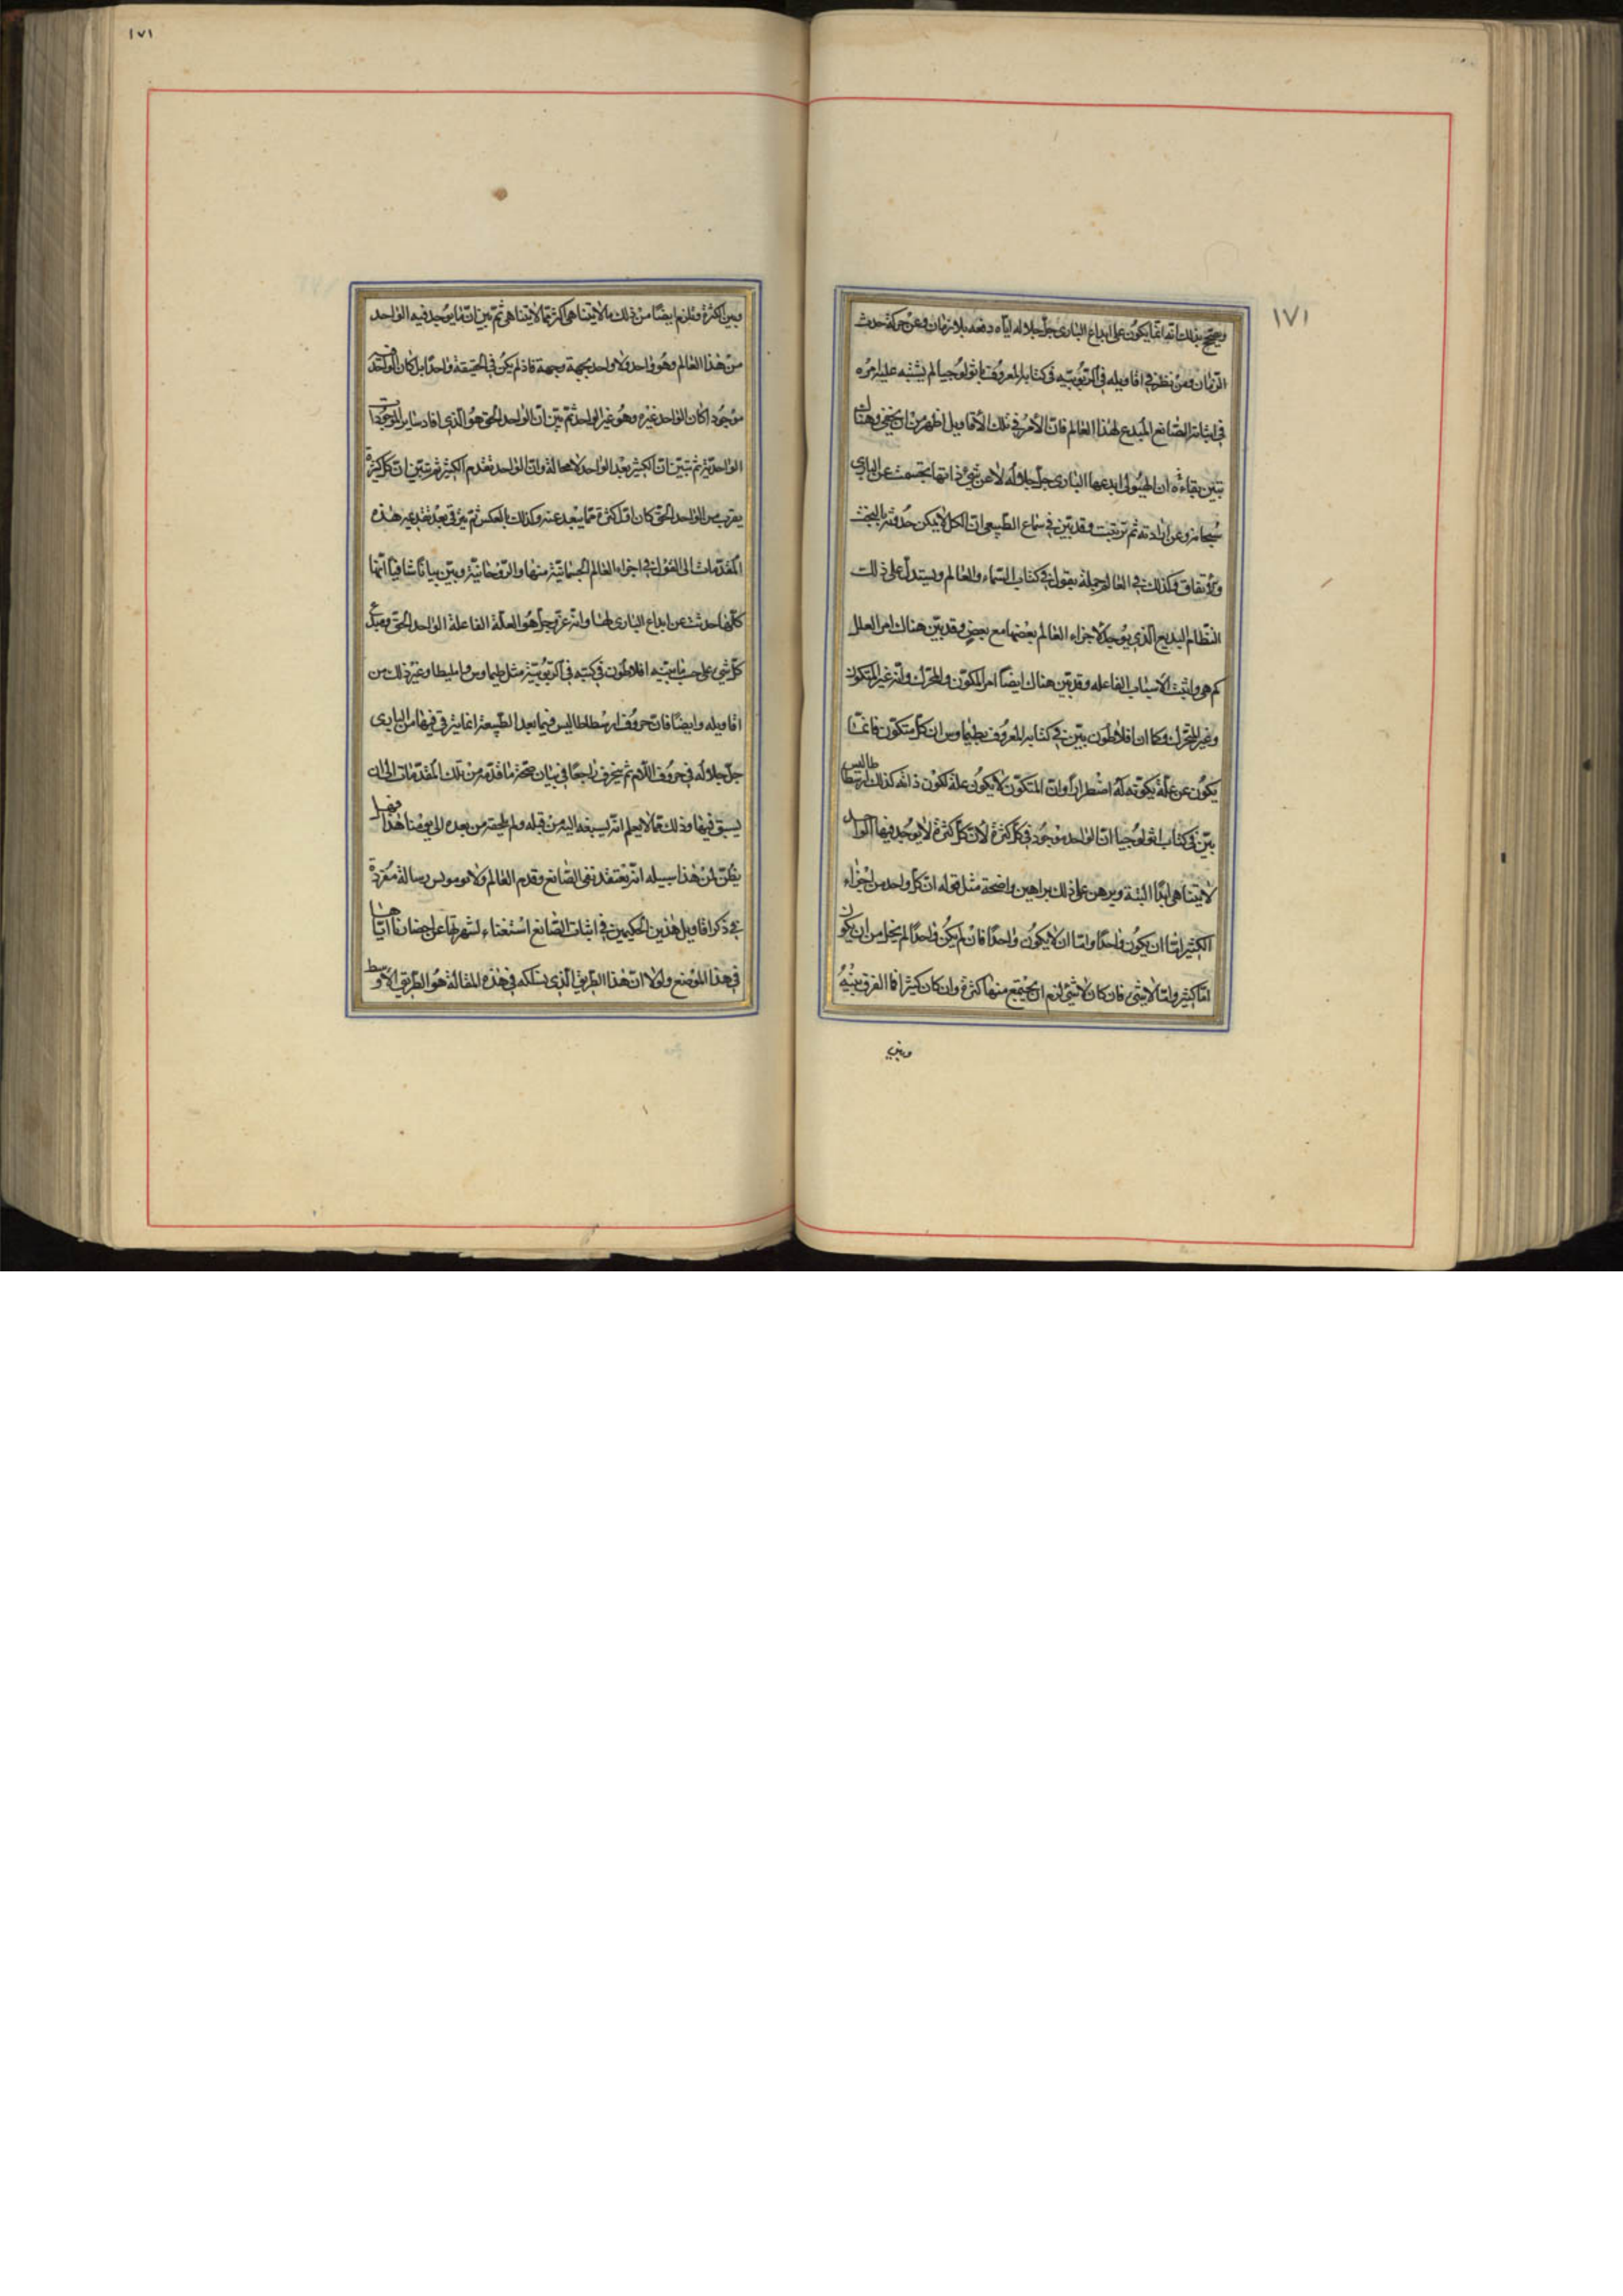 ١٧١
ويصح بذلك انه انما يكون على ابداع البارى جل جلاله اياه دفعه بلا زمان وعن حركة حدث
الزمان ومن نظر فى اقاويله فى الربوبيه فى كتابه المعروف باثولوجيا لم يشتبه عليه امره
فى اثباته الصانع المبدع لهذا العالم فان الامر فى تلك الاقاويل اظهر من ان يخفى وهناك
تبين ان الهيولى ابدعها البارى جل جلاله لا عن شيء وانها تجسمت عن البارى
سبحانه وعن ارادته ثم ترتبت وقد بين فى سماع الطبيعى ان الكل لا يمكن حدوثه بالبخت
والاتفاق وكذلك فى العالم جملة يقول فى كتاب السماء والعالم ويستدل على ذلك
النظام البديع الذى يوجد لاجزاء العالم بعضها مع بعض وقد بين هناك امر العلل
كم هى واثبت الاسباب الفاعله وقد بين هناك ايضا امر المكون والمحرك وانه غير المتكون
وغير المتحرك وكما ان افلاطون بين فى كتابه المعروف بطيماوس ان كل متكون فانما
يكون عن علة يكونه له اضطرارا وان المتكون لا يكون علة لكون ذاته كذلك ارسطاطاليس
بين فى كتاب اثولوجيا ان الواحد موجود فى كل كثرة لان كل كثرة لا يوجد فيها الواحد
لا يتناهى ابدا البتة وبرهن على ذلك براهين واضحة مثل قوله ان كل واحد من اجزاء
الكثير اما ان يكون واحدا واما ان لا يكون واحدا فان لم يكن واحدا لم يخل من ان يكون
اما كثير واما لا شيء فان كان لا شيء لزم ان يجتمع منها كثرة وان كان كثيرا فما الفرق بينه
وبين
١٧١
وبين الكثرة ويلزم ايضا من ذلك ما لا يتناهى اكثر مما لا يتناهى ثم بين ان ما يوجد فيه الواحد
من هذا العالم وهو واحد ولا واحد بجهة وجهة فاذ لم يكن فى الحقيقة واحدا بل كان الواحد فيه
موجودا كان الواحد غيره وهو غير الواحد ثم بين ان الواحد الحق هو الذى افاد ساير الموجودات
الواحدية ثم بين ان الكثير بعد الواحد لا محالة وان الواحد تقدم الكثير ثم تبين ان كل كثرة
يقرب من الواحد الحق كان اقل كثرة مما يبعد عنه وكذلك بالعكس ثم يرقى بعد تقديمه هذه
المقدمات الى القول فى اجزاء العالم الجسمانية منها والروحانية وبين بيانا شافيا انها
كلها حدثت عن ابداع البارى لها وانه عز وجل هو العلة الفاعلة الواحد الحق ومبدع
كل شيء على حسب ما بينه افلاطون فى كتبه فى الربوبية مثل طيماوس وبوليطيا وغير ذلك من
اقاويله وايضا فان حروف ارسطاطاليس فيما بعد الطبيعة انما يترقى فيها من البارى
جل جلاله فى حروف اللام ثم ينحرف راجعا فى بيان صحة ما قدمه من تلك المقدمات الى ان
يسبق فيها وذلك مما لا يعلم انه يسبقه اليه من قبله ولم يلحقه من بعده الى يومنا هذا فهل
يظن بمن هذا سبيله انه يعتقد نفى الصانع وقدم العالم ولامونيوس رسالة مفردة
فى ذكر اقاويل هذين الحكيمين فى اثبات الصانع استغناء لشهرتها عن احضارنا اياها
فى هذا الموضع ولولا ان هذا الطريق الذى نسلكه فى هذه المقالة هو الطريق الاوسط